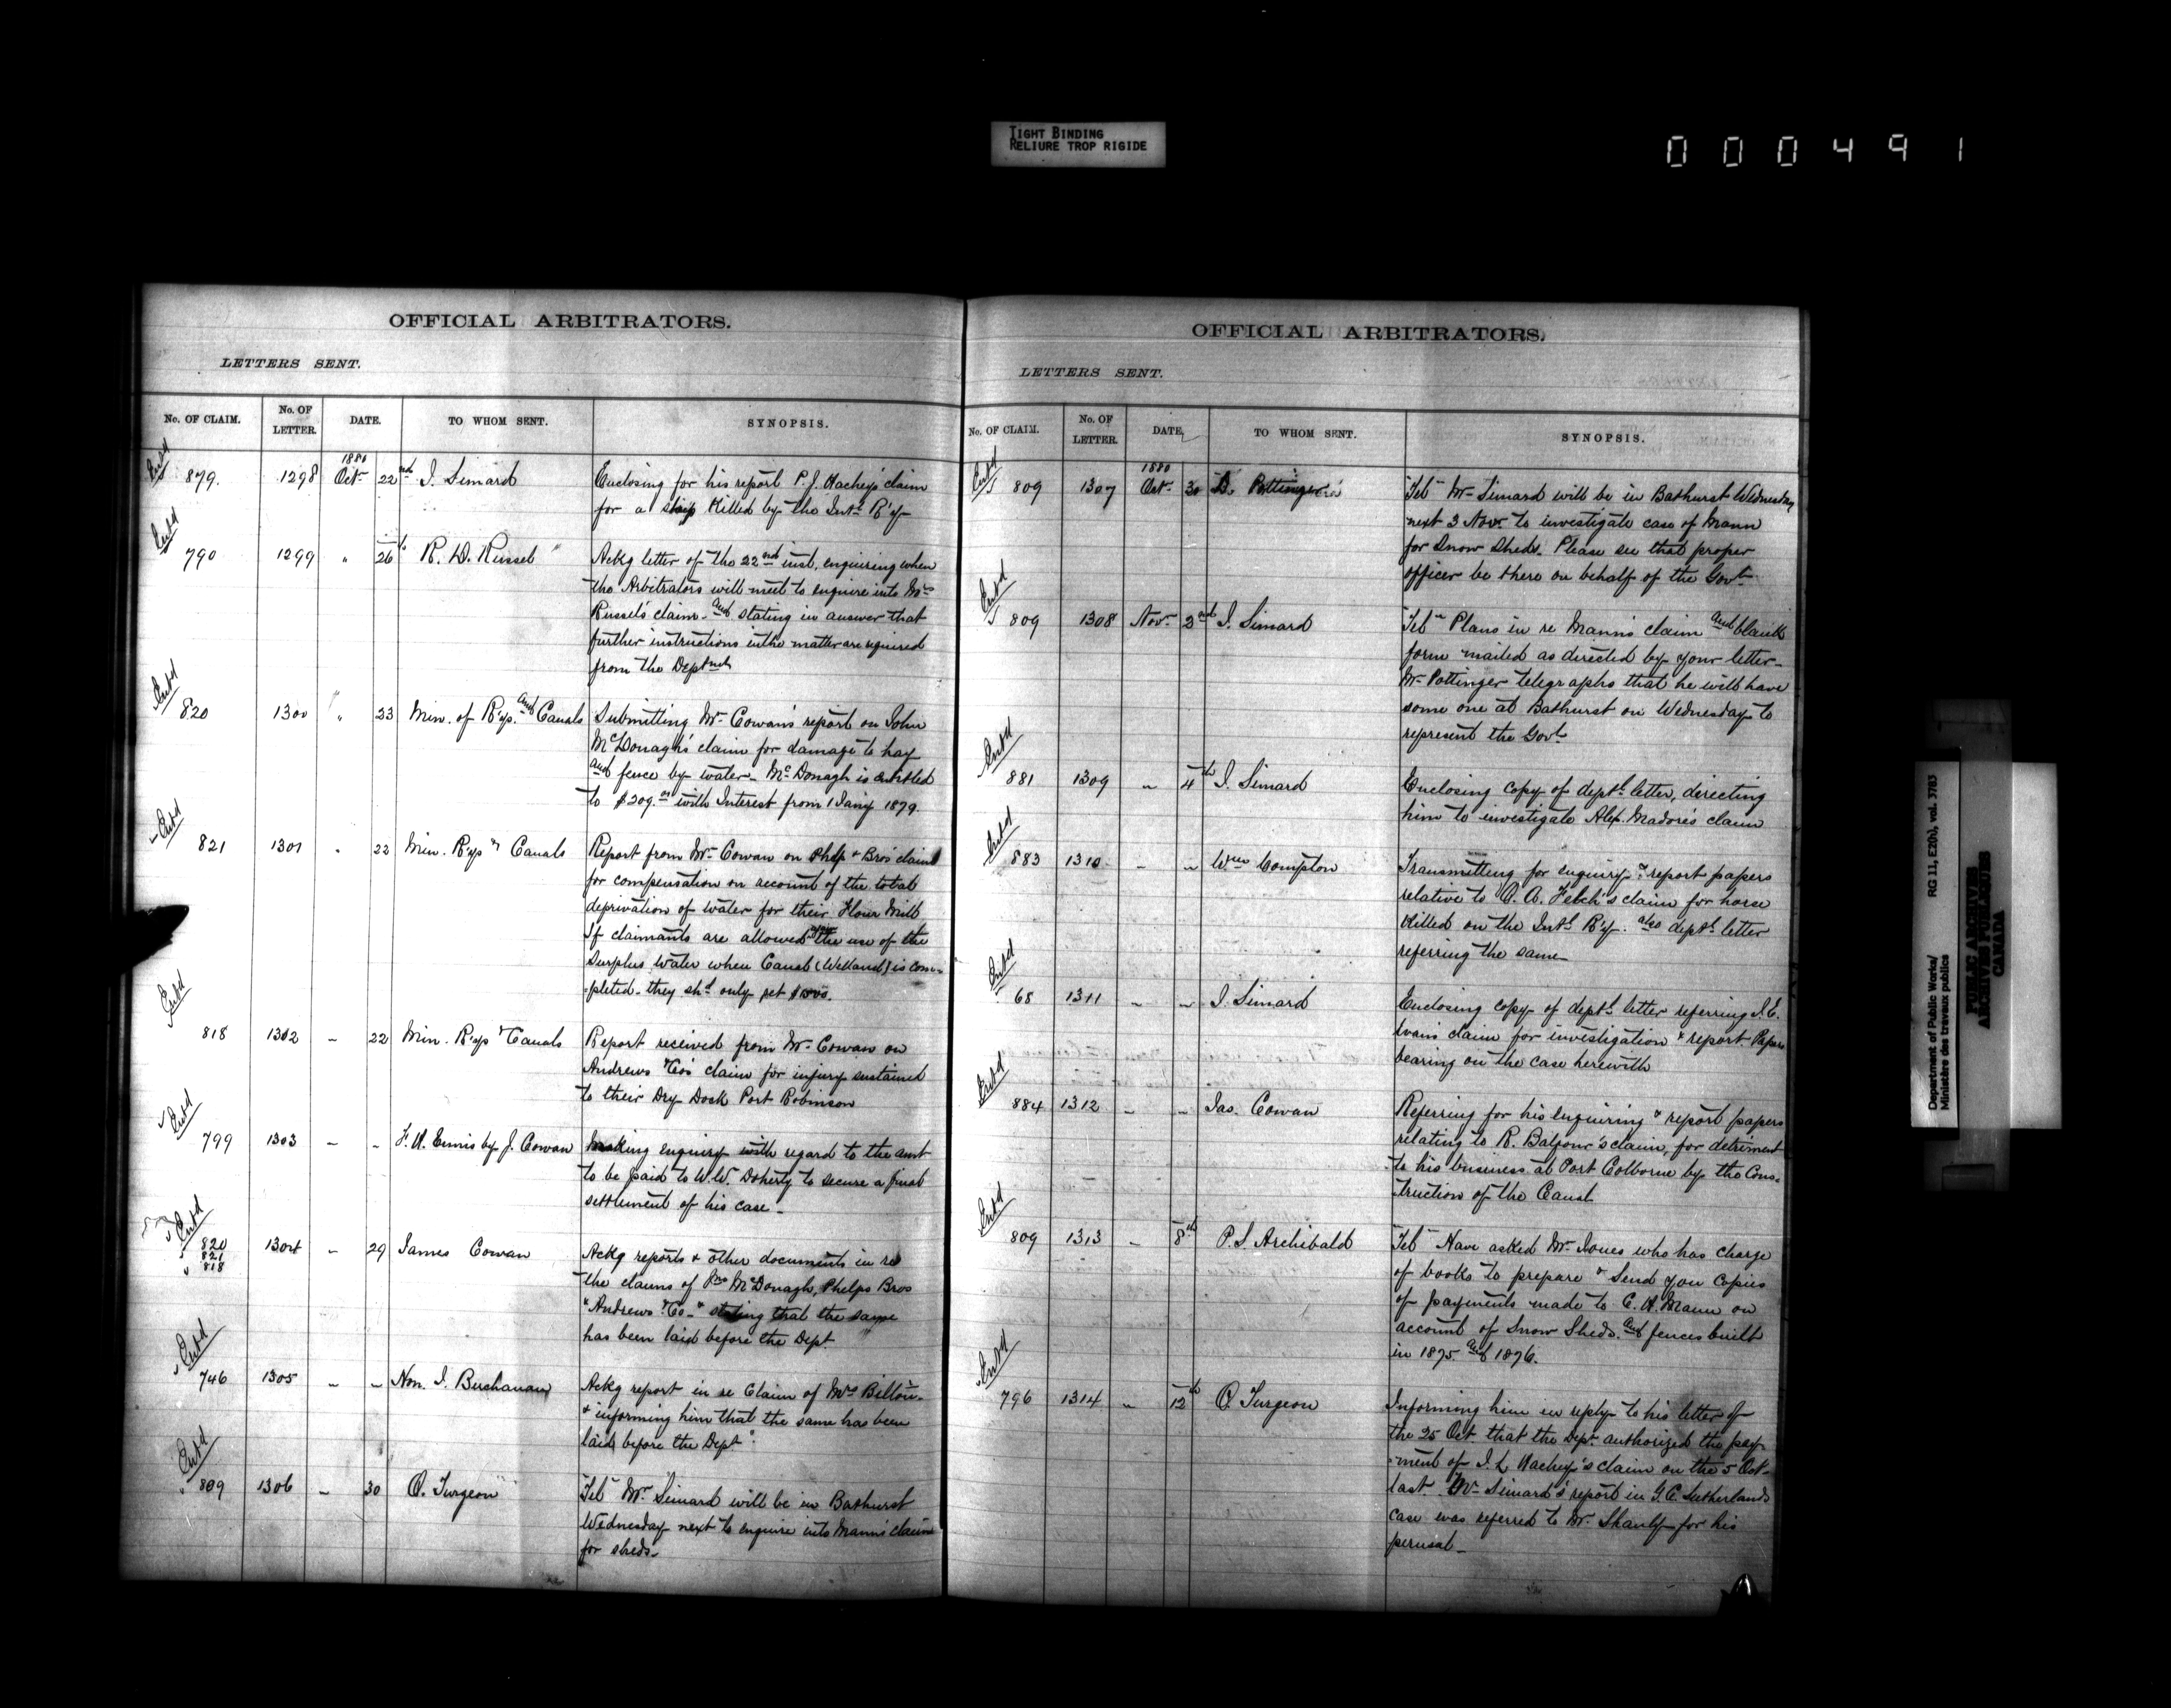 TIGHT BINDING
RELIURE TROP RIGIDE
000491
OFFICIAL ARBITRATORS.
LETTERS SENT.
No. OF CLAIM. No. OF LETTER. DATE. TO WHOM SENT. SYNOPSIS.
Entd 879. 1298 1880 Oct 22nd I. Simard Enclosing for his report P. J. Hachey's claim
for a killed by the Int. R'y
Entd 790 1299 " 26th R. D. Russel Ackg letter of the 22nd inst. enquiring when
the Arbitrators will meet to enquire into Mrs
Russel's claim and stating in answer that
further instructions in the matter are required
from the Deptmt
Entd 820 1300 " 23 Min. of R'ys. and Canals Submitting Mr Cowan's report on John
McDonagh's claim for damage to hay
and fence by water. McDonagh is entitled
to $209.00 with Interest from 1 Jany 1879
Entd 821 1301 " 22 Min. R'ys & Canals Report from Mr Cowan on Bros claim
for compensation on account of the total
deprivation of water for their Flour Mill
If claimants are allowed the use of the
Surplus water when Canal (Welland) is com-
-pleted. they shd only get
Entd 818 1302 " 22 Min. R'ys & Canals Report received from Mr Cowan on
Andrews & Co's claim for injury sustained
to their Dry Dock Port Robinson
Entd 799 1303 " " F. H. Ennis by J. Cowan Making enquiry with regard to the amt
to be paid to W.W. Doherty to secure a final
settlement of his case
Entd 820 821 818 1304 " 29 James Cowan Ackg reports & other documents in re
the claims of Jno McDonagh, Phelps Bros
& Andrews & Co. & stating that the same
has been laid before the Dept.
Entd 746 1305 " " Hon. I. Buchanan Ackg report in re Claim of Mrs
& informing him that the same has been
laid before the Dept.
Entd 809 1306 " 30 O. Turgeon Tel Mr Simard will be in Bathurst
Wednesday next to enquire into Mann's claim
for sheds
OFFICIAL ARBITRATORS.
LETTERS SENT.
No. OF CLAIM. No. OF LETTER. DATE. TO WHOM SENT. SYNOPSIS.
Entd 809 1307 1880 Oct 30 D. Pottinger Tel Mr Simard will be in Bathurst Wednesday
next 3 Nov. to investigate case of Mann
for Snow Sheds. Please see that proper
officer be there on behalf of the Govt
Entd 809 1308 Nov. 2nd I. Simard Tel Plans in re Mann's claim and blank
form mailed as directed by your letter
Mr Pottinger telegraphs that he will have
some one at Bathurst on Wednesday to
represent the Govt
Entd 881 1309 " 4th I. Simard Enclosing copy of deptl letter, directing
him to investigate Alex. Madore's claim
Entd 883 1310 " " Wm Compton Transmitting for enquiry & report papers
relative to claim for horse
Killed on the Intl R'y. also deptl letter
referring the same
Entd 68 1311 " " I. Simard Enclosing copy of deptl letter referring
claim for investigation & report Papers
bearing on the case herewith
Entd 884 1312 " " Jas. Cowan Referring for his enquiring & report papers
relating to R. Balfour's claim, for detriment
to his business at Port Colborne by the Cons-
truction of the Canal
Entd 809 1313 " 8th P. S. Archibald Tel Have asked Mr Jones who has charge
of books to prepare & Send you Copies
of payments made to C. H. Mann on
account of Snow Sheds and fences built
in 1875 and 1876.
Entd 796 1314 " 12th O. Turgeon Informing him in reply to his letter of
the 25 Oct. that the Dept. authorized the pay-
-ment of Hachey's claim on the 5 Oct
last. Mr Simard's report in G. C. Sutherlands
case was referred to Mr. Shanly for his
perusal
Department of Public Works/ RG 11, E2(h), vol. 3783
Ministère des travaux publics
PUBLIC ARCHIVES
ARCHIVES PUBLIQUES
CANADA